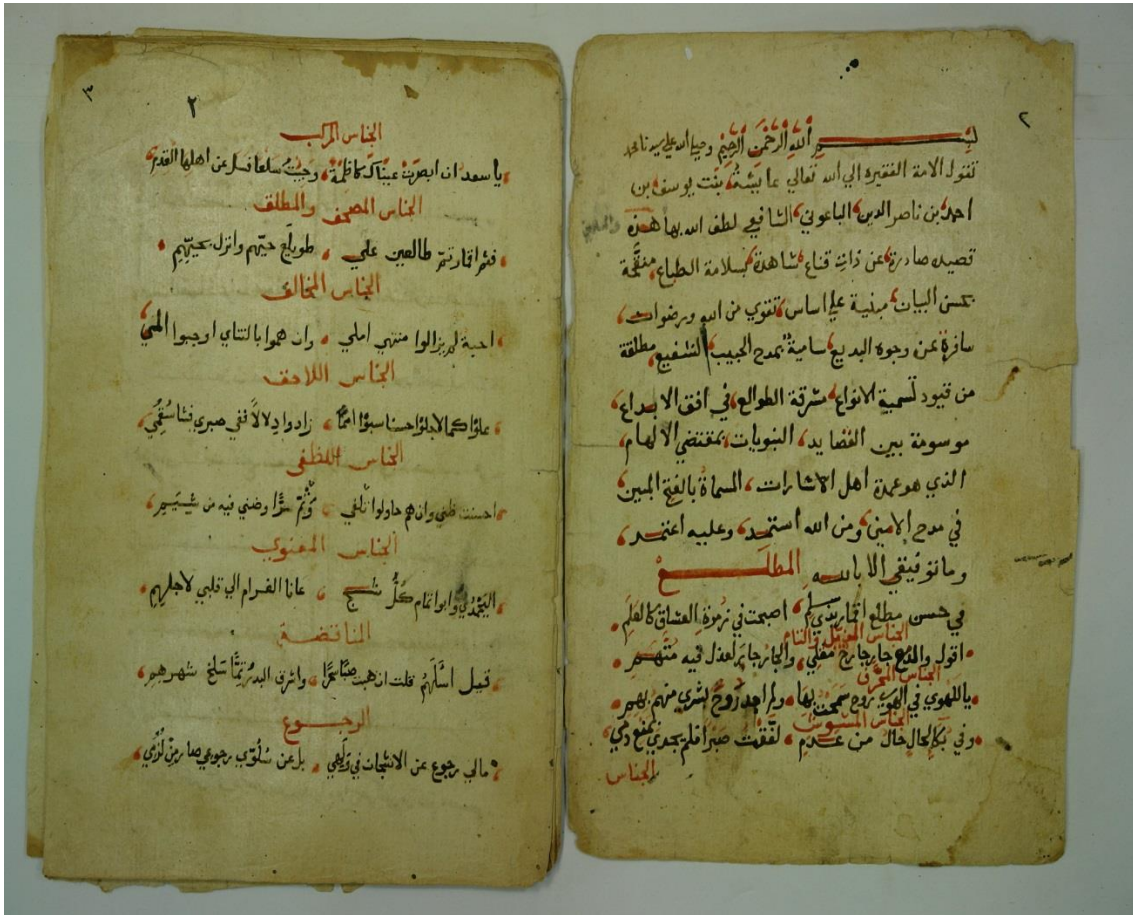 ٢
بسم الله الرحمن الرحيم وصلى الله على سيدنا محمد
تقول الامة الفقيره الي الله تعالي عايشة بنت يوسف بن
احمد بن ناصر الدين الباعوني الشافعي لطف الله بها هذه
قصيده صادرة عن ذات قناع شاهدة بسلامة الطباع منقحة
بحسن البيان مبنية علي اساس تقوي من الله ورضوان
سافرة عن وجوه البديع سامية بمدح الحبيب الشفيع مطلقة
من قيود تسمية الانواع مشرقة الطوالع في افق الابداع
موسومة بين القصايد النبويات بمقتضي الالهام
الذي هو عمدة اهل الاشارات المسماة بالفتح المبين
في مدح الامين ومن الله استمد وعليه اعتمد
وما توفيقي الا بالله المطلع
في حسن مطلع اقمار بذي سلم اصبحت في زمرة العشاق كالعلم
الجناس المذيل والتام
اقول والدمع جار جارح مقلي والجار جار بعذل فيه متهم
الجناس المحرف
ياللهوي في الهوي روح سمحت بها ولم اجد روح بشري منهم بهم
الجناس المشوش
وفي بكائي لحال حال من عدم لفقت صبرا فلم يجدي لمنع دمي
الجناس
٣
٢
الجناس المركب
يا سعد ان ابصرت عيناك كاظمة وجيت سلعا فسل عن اهلها القدم
الجناس المصحف والمطلق
فثم اقمار تم طالعين علي طويلع حيهم وانزل بحيهم
الجناس المخالف
احبة لم يزالوا منتهي املي وان هموا بالتناي اوجبوا المي
الجناس اللاحق
علوا كمالا جلوا حسنا سبوا امما زادوا دلالا فني صبري فشا سقمي
الجناس اللفظي
احسنت ظني وان هم حاولوا تلفي وثم سرا وضني فيه من شيمي
الجناس المعنوي
اليحمدي وابو تمام كل شج عانا الغرام الي قلبي لاجلهم
المناقضة
قيل اسلهم قلت ان هبت صبا سحرا واشرق البدر تما سلخ شهرهم
الرجوع
مالي رجوع عن الاشجان في ولهي بل عن سلوي رجوعي صار من لزمي